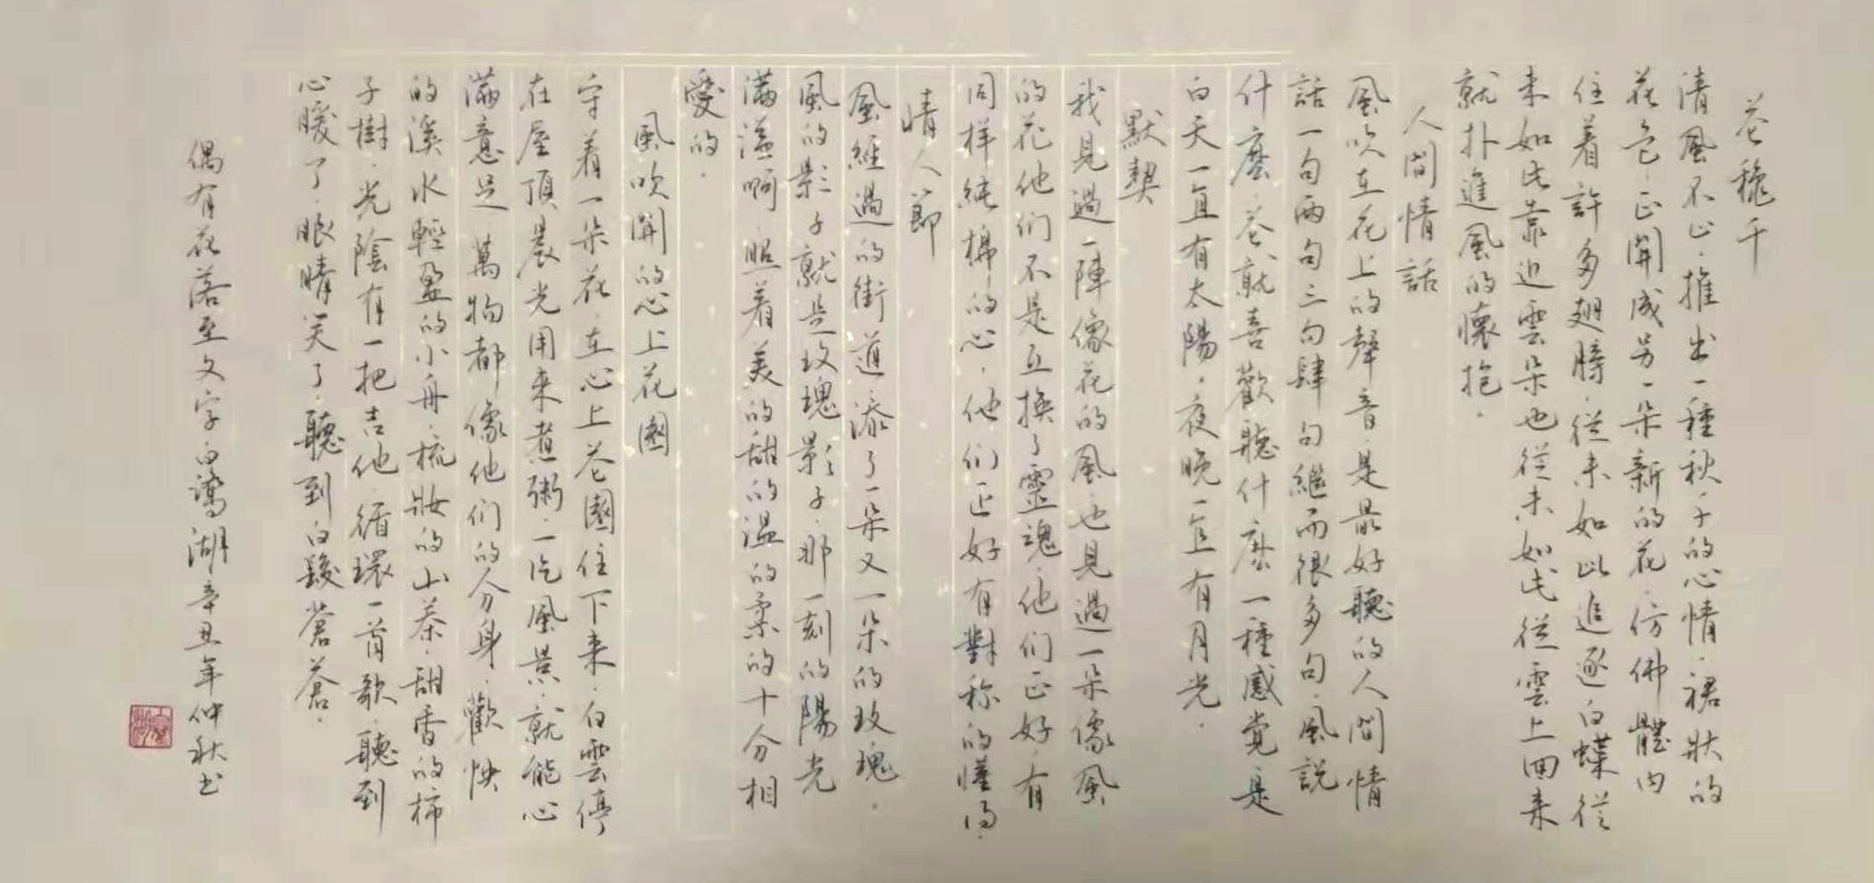 花裙子
清風不止．推出一種秋千的心情．裙狀的
花色．正開成另一朵新的花．仿佛體内
住着許多翅膀．從未如此追逐白蝶從
未如此靠近雲朵也從未如此從雲上回来
就扑進風的懷抱．
人間情話
風吹在花上的聲音．是最好聽的人間情
話一句兩句三句肆句繼而很多句．風説
什麽．花就喜歡聽什麽一種感覚是
白天一直有太陽．夜晚一直有月光．
默契
我見過一陣像花的風也見過一朵像風
的花他们不是互换了靈魂．他们正好有
同样純棉的心．他们正好有對称的懂得．
情人節
風經過的街道．添了一朵又一朵的玫瑰．
風的影子就是玫瑰影子．那一刻的陽光
滿溢啊．照着美的甜的温的柔的十分相
愛的．
風吹開的心上花園
守着一朵花．在心上花園住下来．白雲停
在屋頂晨光用来煮粥．一阵風景．就能心
滿意足．萬物都像他们的分身．歡快
的溪水輕盈的小舟．梳妝的山茶．甜香的柿
子樹．光陰有一把吉他．循環一首歌．聽到
心暖了．眼睛笑了．聽到白髮蒼蒼．
偶有花落至文字白鷺湖辛丑年仲秋书